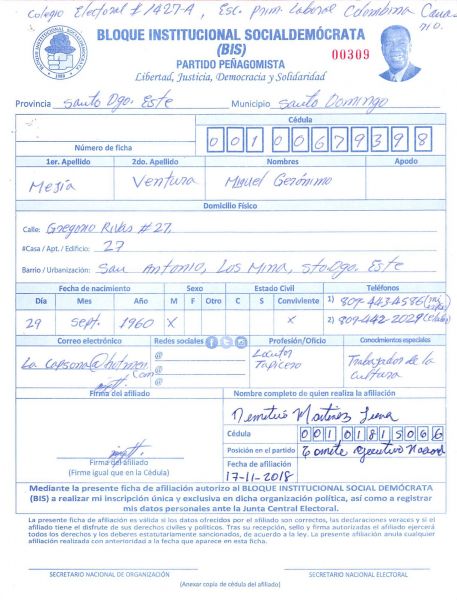 Colegio Electoral # 1427-A, Esc. prim. Laboral Colombina
BLOQUE INSTITUCIONAL SOCIALDEMÓCRATA
(BIS)
00309
PARTIDO PEÑAGOMISTA
Libertad, Justicia, Democracia y Solidaridad
Provincia Santo Dgo. Este Municipio Santo Domingo
Cédula
Número de ficha 0 0 1 0 0 6 7 9 3 9 8
1er. Apellido 2do. Apellido Nombres Apodo
Mejía Ventura Miguel Gerónimo
Domicilio Físico
Calle: Gregorio Rivas # 27,
#Casa / Apt. / Edificio: 27
Barrio / Urbanización: San Antonio, Los Mina, Sto. Dgo. Este
Fecha de nacimiento Sexo Estado Civil Teléfonos
Día Mes Año M F Otro C S Conviviente 1) 809-443-4586
29 Sept. 1960 X X 2) 809-442-2029 (celular)
Correo electrónico Redes sociales Profesión/Oficio Conocimientos especiales
@ Locutor Trabajador de la
@ Tapicero cultura
@
Firma del afiliado Nombre completo de quien realiza la afiliación
Demetrio Martínez
Cédula 0 0 1 0 1 8 1 5 0 6 6
Firma del afiliado Posición en el partido Comité ejecutivo Nacional
(Firme igual que en la Cédula) Fecha de afiliación
17-11-2018
Mediante la presente ficha de afiliación autorizo al BLOQUE INSTITUCIONAL SOCIAL DEMÓCRATA
(BIS) a realizar mi inscripción única y exclusiva en dicha organización política, así como a registrar
mis datos personales ante la Junta Central Electoral.
La presente ficha de afiliación es válida si los datos ofrecidos por el afiliado son correctos, las declaraciones veraces y si el
afiliado tiene el disfrute de sus derechos civiles y políticos. Tras su recepción, sello y firma autorizadas el afiliado ejercerá
todos los derechos y los deberes estatutariamente sancionados, de acuerdo a la ley. La presente afiliación anula cualquier
afiliación realizada con anterioridad a la fecha que aparece en esta ficha.
SECRETARIO NACIONAL DE ORGANIZACIÓN SECRETARIO NACIONAL ELECTORAL
(Anexar copia de cédula del afiliado)